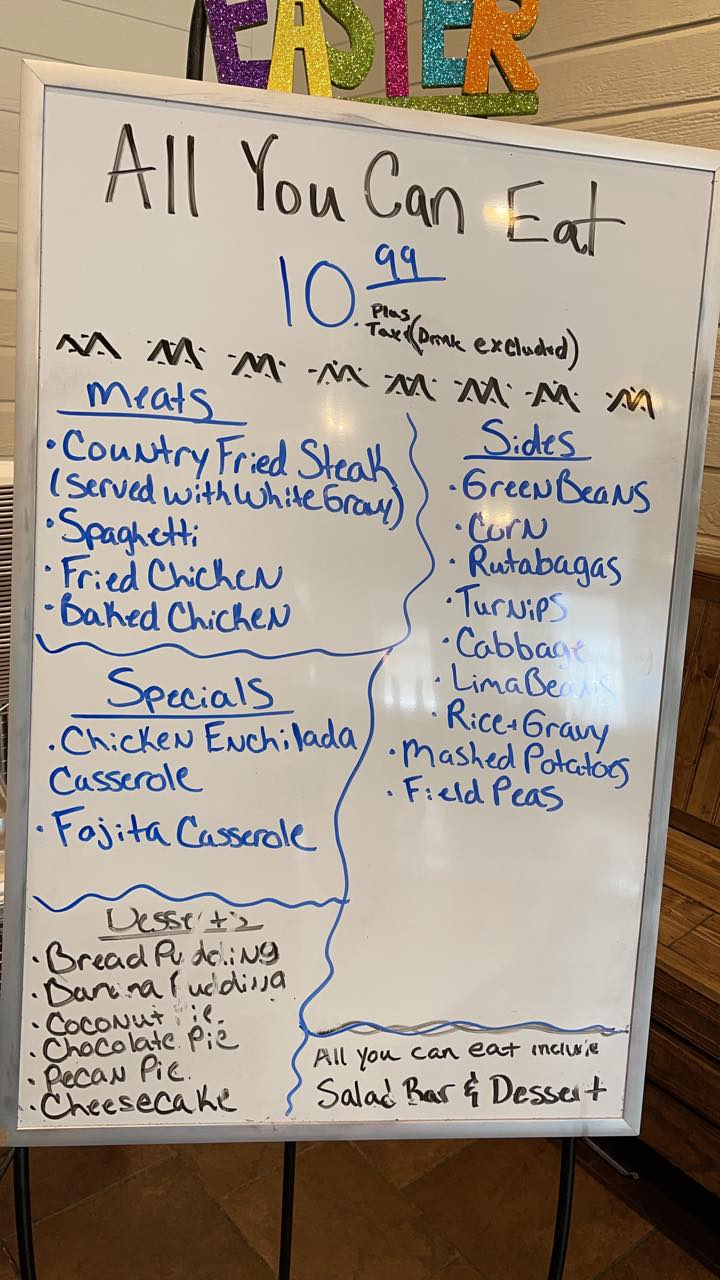 EASTER
All You Can Eat
10.99
Plus
Tax (Drink excluded)
Meats
• Country Fried Steak
(Served with White Gravy)
• Spaghetti
• Fried Chicken
• Baked Chicken
Specials
• Chicken Enchilada
Casserole
• Fajita Casserole
Desserts
• Bread Pudding
• Banana Pudding
• Coconut Pie
• Chocolate Pie
• Pecan Pie
• Cheesecake
Sides
• Green Beans
• Corn
• Rutabagas
• Turnips
• Cabbage
• Lima Beans
• Rice + Gravy
• Mashed Potatoes
• Field Peas
All you can eat include
Salad Bar & Dessert